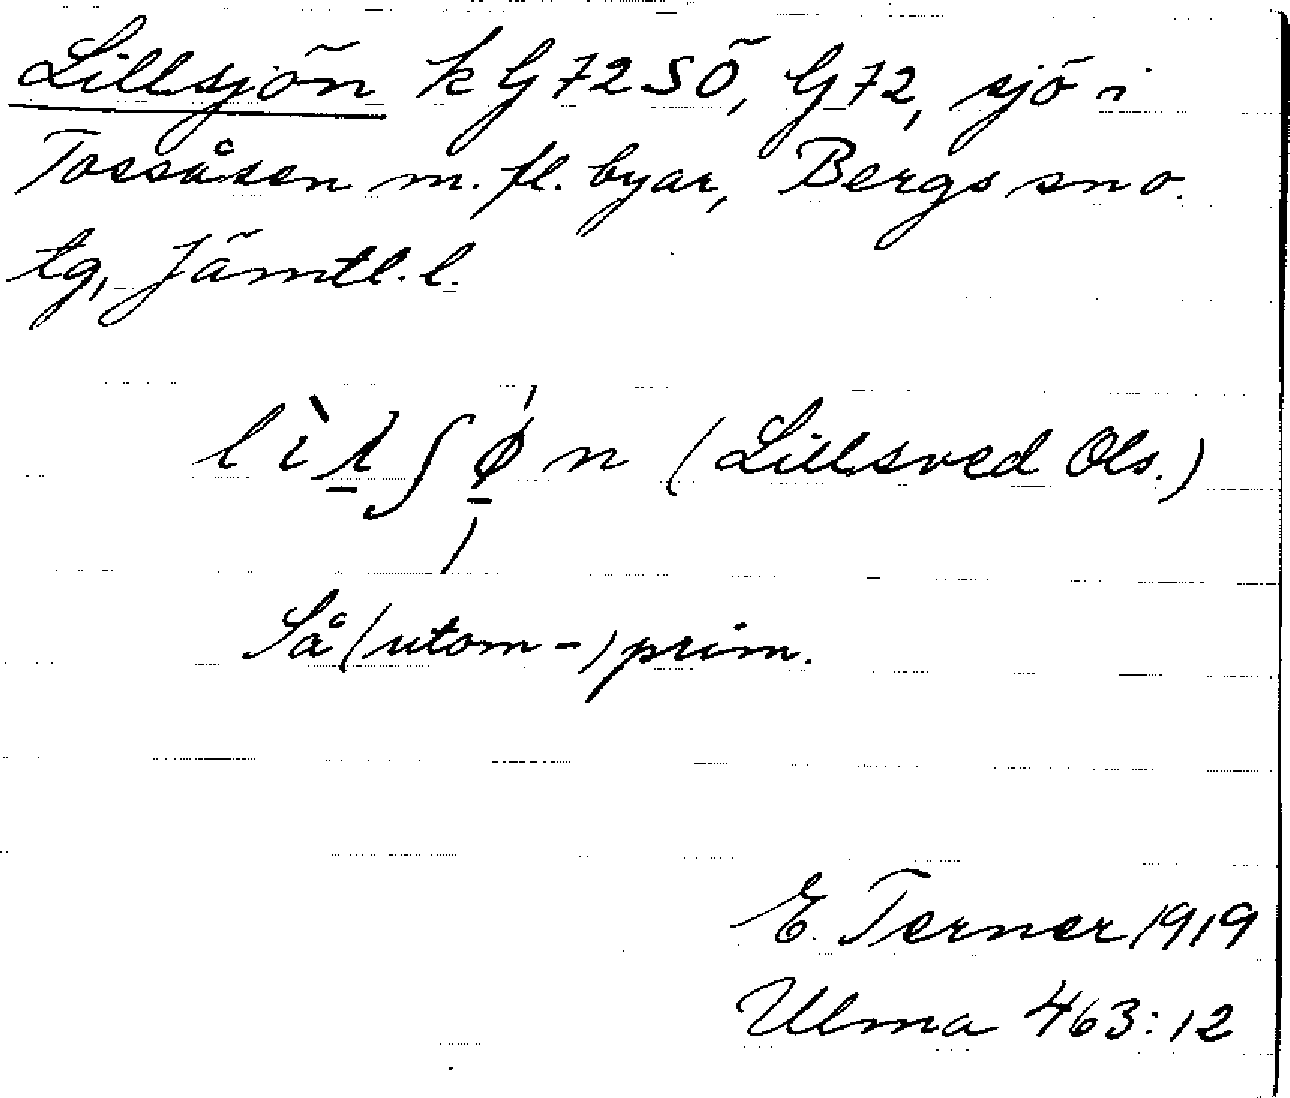 Lillsjön k G72SÖ, G72, sjö i
Tossåsen m. fl. byar, Bergs sno.
tg, Jämtl. l.
(Lillsved Ols.)
Så (utom -) prim.
E. Terner 1919
Ulma 463:12